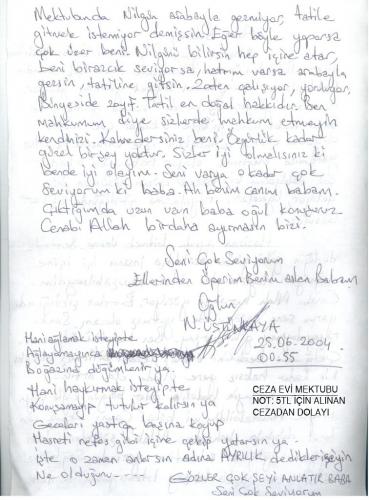 Mektubunda Nilgün arabayla gezmiyor, tatile
gitmek istemiyor demişsin. Eğer böyle yaparsa
çok üzer beni. Nilgünü bilirsin hep içine atar,
beni birazcık seviyorsa, hatrım varsa arabayla
gezsin, tatiline gitsin. Zaten çalışıyor, yoruluyor,
Bünyesi de zayıf. Tatil en doğal hakkıdır. Ben
mahkumum diye sizlerde mahkum etmeyin
kendinizi. Kahredersiniz beni. Özgürlük kadar
güzel birşey yoktur. Sizler iyi olmalısınız ki
bende iyi olayım. Seni varya o kadar çok
seviyorum ki baba. Ah benim canım babam.
Çıktığımda uzun uzun baba oğul konuşuruz.
Cenabı Allah birdaha ayırmasın bizi.
Seni Çok Seviyorum
Ellerinden Öperim Benim aslan Babam
Oğlun
N. ÜSTÜNKAYA
25.06.2004
00.55
Hani ağlamak isteyipte
Ağlayamayınca
Boğazına düğümlenir ya
Hani haykırmak isteyipte
Konuşamayıp tutulur kalırsın ya
Geceleri yastığa başına koyup
Hasreti nefes gibi içine çekip yatarsın ya
İşte o zaman anlarsın adına AYRILIK dedikleri şeyin
Ne olduğunu----
GÖZLER ÇOK ŞEYİ ANLATIR BABA
Seni Çok Seviyorum
CEZA EVİ MEKTUBU
NOT: 5TL İÇİN ALINAN
CEZADAN DOLAYI